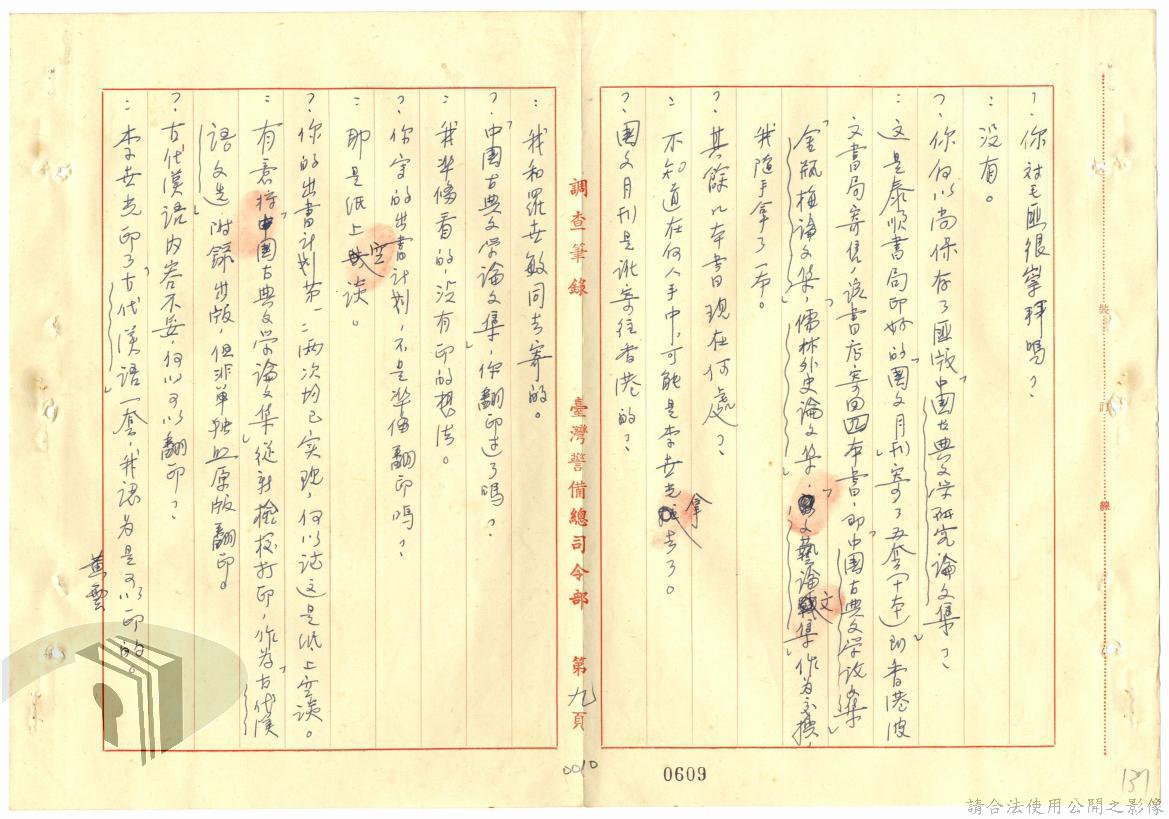 ?你对毛匪很崇拜嗎?
:没有。
?你何以尚保存了匪版「中國古典文学研究論文集」?
:这是泰順書局印妙的「國文月刊」寄了五套(十本)到香港波
文書局寄售,该書店寄回四本書,即「中國古典文学改集」
「金瓶梅論文集,儒林外史論文集」,「文藝論文集」作为交換,
我隨手拿了一本。
?其餘几本書现在何處?
:不知道在何人手中,可能是李世光拿去了。
?國文月刊是谁寄往香港的?
調查筆錄
臺灣警備總司令部
第九頁
:我和羅世敏同去寄的。
?「中國古典文学論文集」,你翻印过了嗎?
:我準俻看的,没有印的想法。
?你寫的出書计划,不是準俻翻印嗎?
:那是紙上空谈。
?你的出書计划第一二两次均已实现,何以说这是纸上空谈。
:有意将「中國古典文学論文集」從新檢核打印,作为「古代漢
語文选」附録出版,但非单独照原版翻印。
?古代漢語内容不妥,何以可以翻印?
:李世光印了「古代漢語」一套,我認为是可以印的。
黄雲
0010
0609
137
裝
訂
線
請合法使用公開之影像